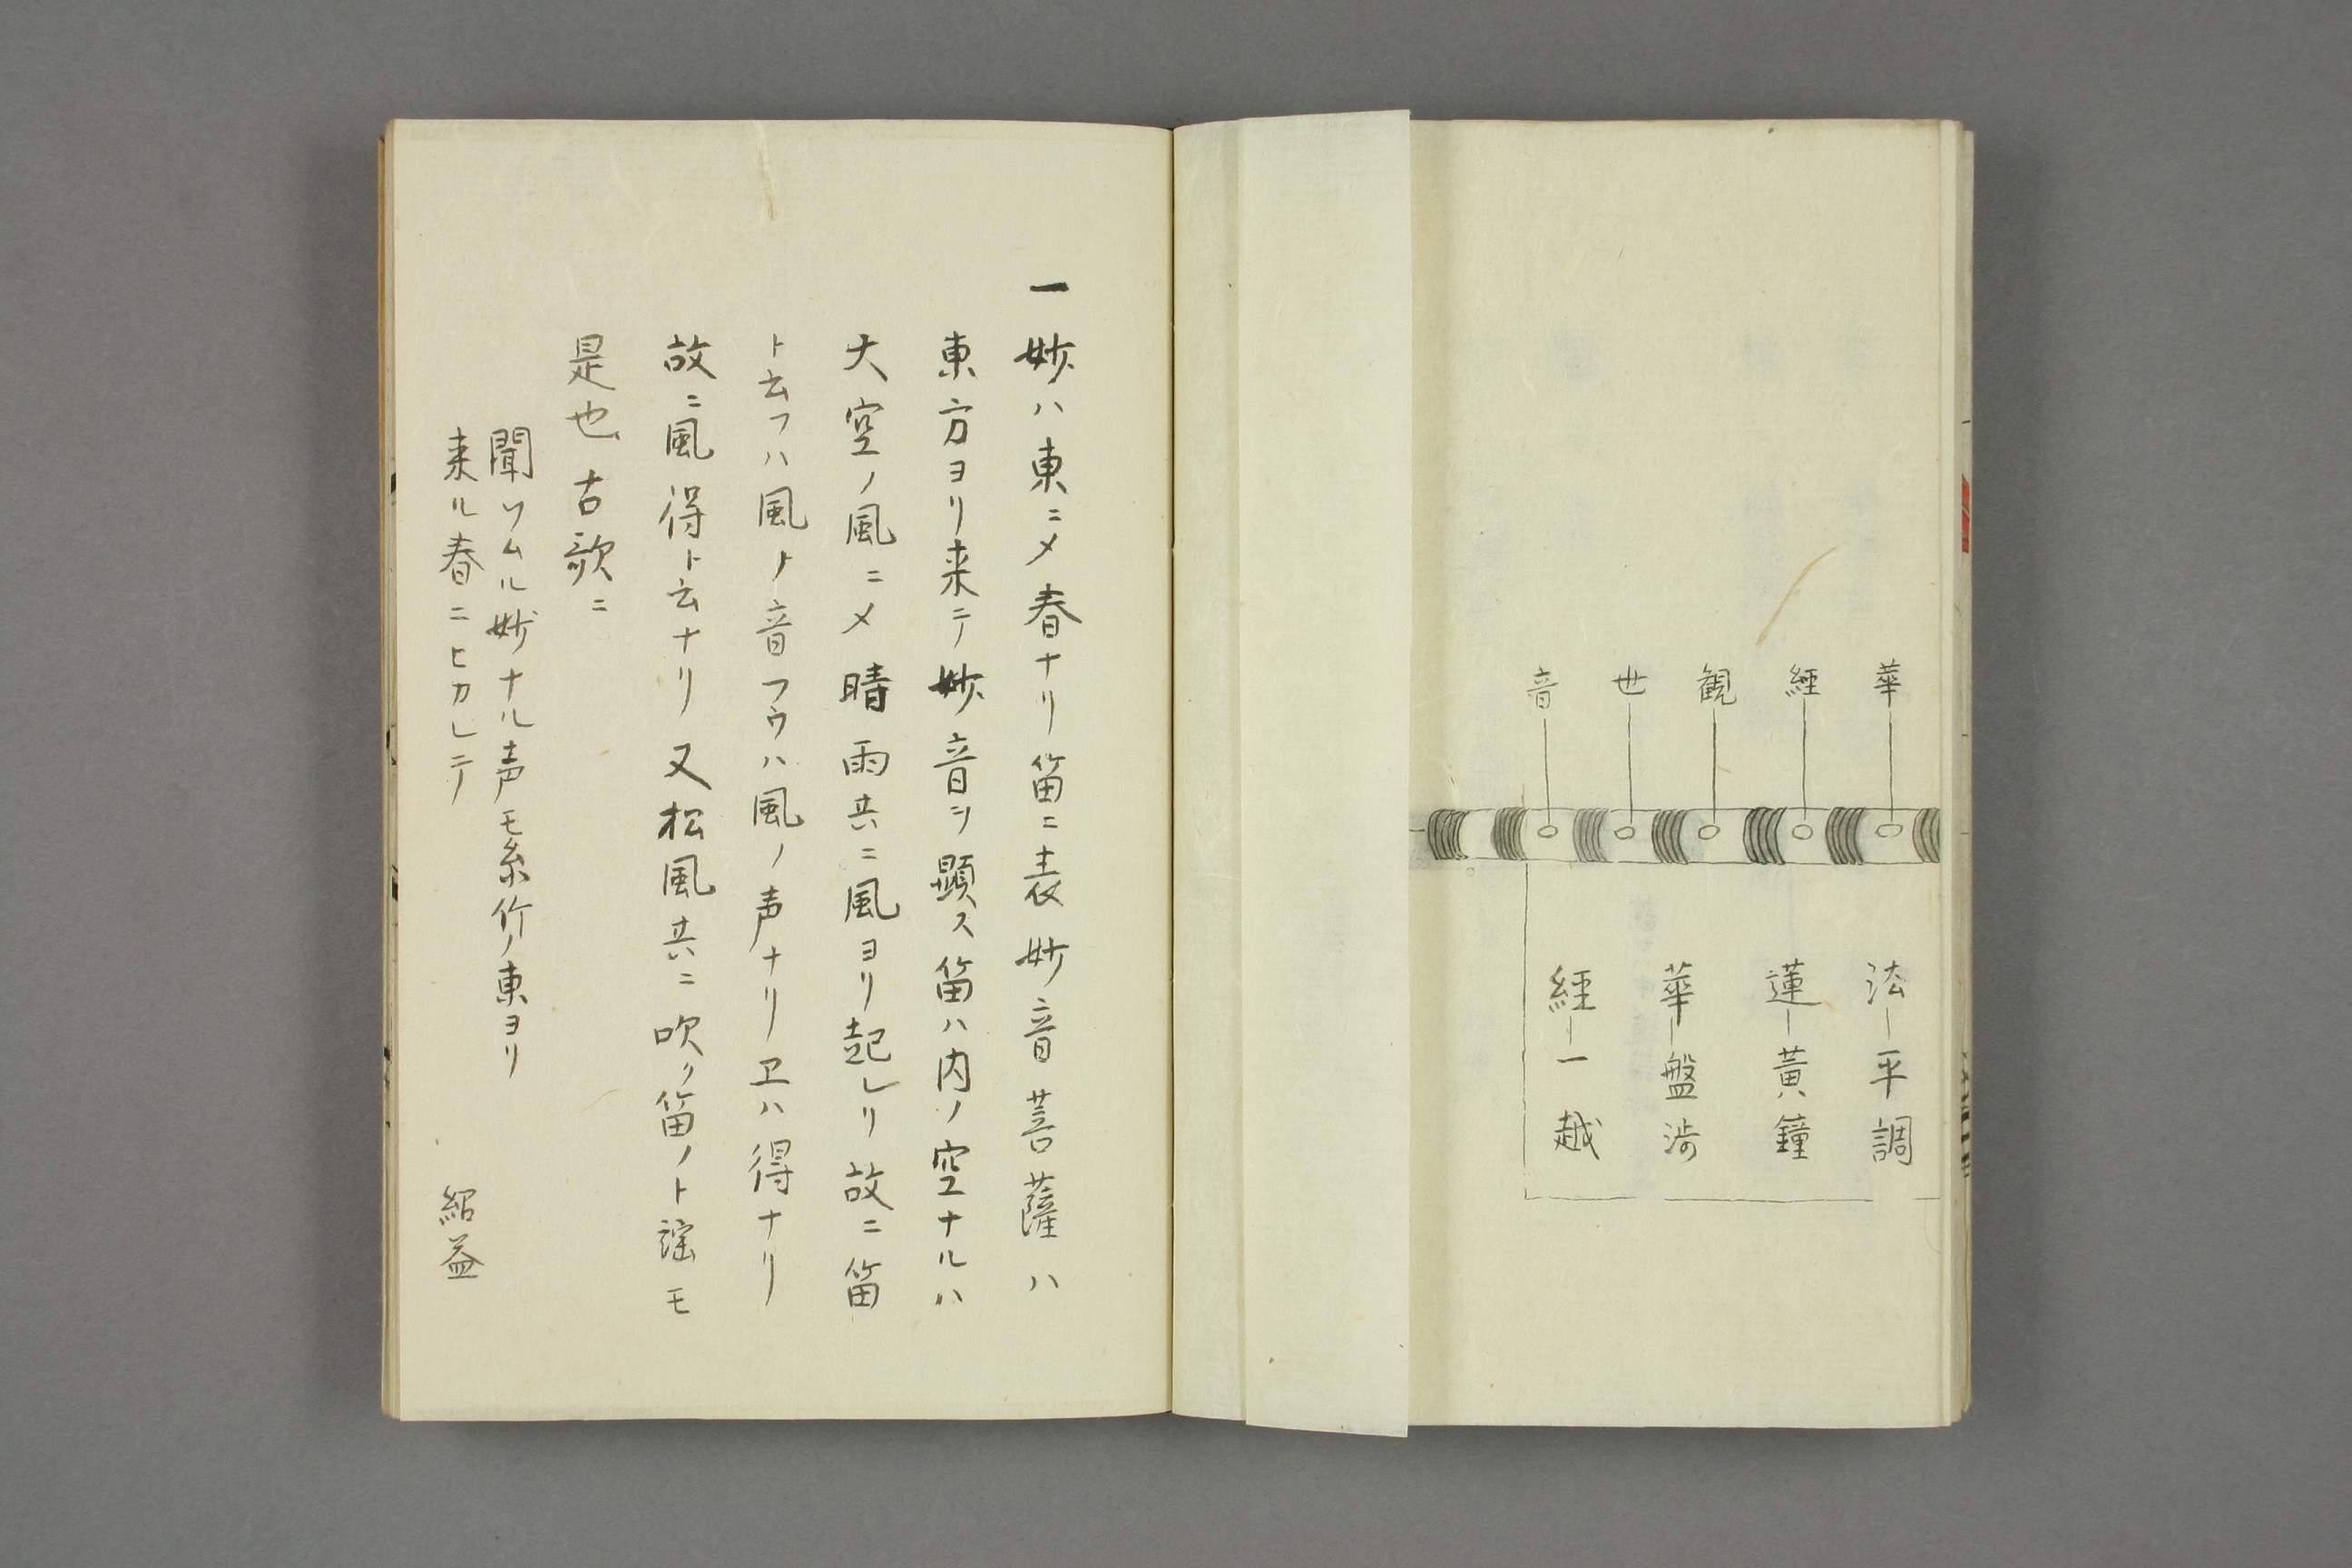 華 経 観 世 音
法―平調
蓮―黄鐘
華―盤渉
経―一越
一 妙ハ東ニメ春ナリ笛ニ表妙音菩薩ハ
東方ヨリ来テ妙音ヲ顕ス笛ハ内ノ空ナルハ
大空ノ風ニメ晴雨共ニ風ヨリ起レリ故ニ笛
ト云フハ風ノ音フウハ風ノ声ナリヱハ得ナリ
故ニ風得ト云ナリ又松風共ニ吹ク笛ノト謡モ
是也古歌ニ
聞ソムル妙ナル声モ糸竹ノ東ヨリ
来ル春ニヒカレテ 紹益